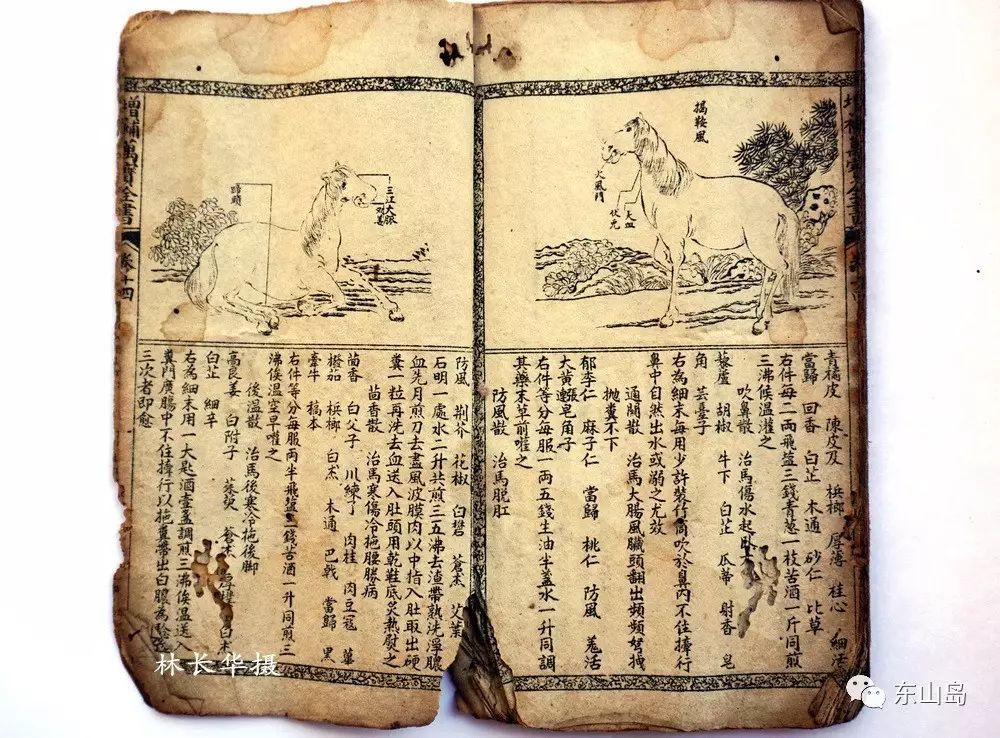 揭鞍風
火風門
大血
伏兄
青橘皮 陳皮 檳榔 厚薄 桂心 細
當歸 回香 白芷 木通 砂仁 比草
右件每二兩飛盐三錢青葱一枝苦酒一斤同煎
三沸候温灌之
吹鼻散 治馬傷水起卧
藜蘆 胡椒 牛下 白芷 瓜蒂 射香 皂
角 芸臺子
右為細末每用少許裝竹筒吹於鼻内不住捧行
鼻中自然出水或溺之尤效
通關散 治馬大腸風臟頭翻出頻頻努拽
拋糞不下
郁李仁 麻子仁 當歸 桃仁 防風 羗活
大黄 皂角子
右件等分每服一兩五錢生油半盏水一升同調
其藥末草前嗺之
防風散 治馬脱肛
增補萬寶全書
卷十四
三江大脉
蹄頭
防風 荆芥 花椒 白礬 蒼朮 艾葉
石明一處水二升共煎三五沸去渣帶熱洗淨膿
血先月煎刀去盡風波膜肉以中指入肚取出硬
糞一粒再洗去血送入肚頭用乾鞋底炙熱熨之
茴香散 治馬寒傷冷拖腰胯病
茴香 白父子 川練了 肉桂 肉豆寇 蓽
撥茄 梹榔 白朮 木通 巴戟 當歸 黑
牽牛 稿本
右件等分每服两半飛盐一錢苦酒一升同煎三
沸候温空草嗺之
後温散 治馬後寒冷拖後脚
高良姜 白附子 茱萸 蒼朮 厚 白朮
白芷 細辛
右為細末用一大匙酒壹盏調煎三沸候温送
糞門廣腸中不住捧行以拖糞帶出白膿為驗
三次者即愈
林长华摄
东山岛